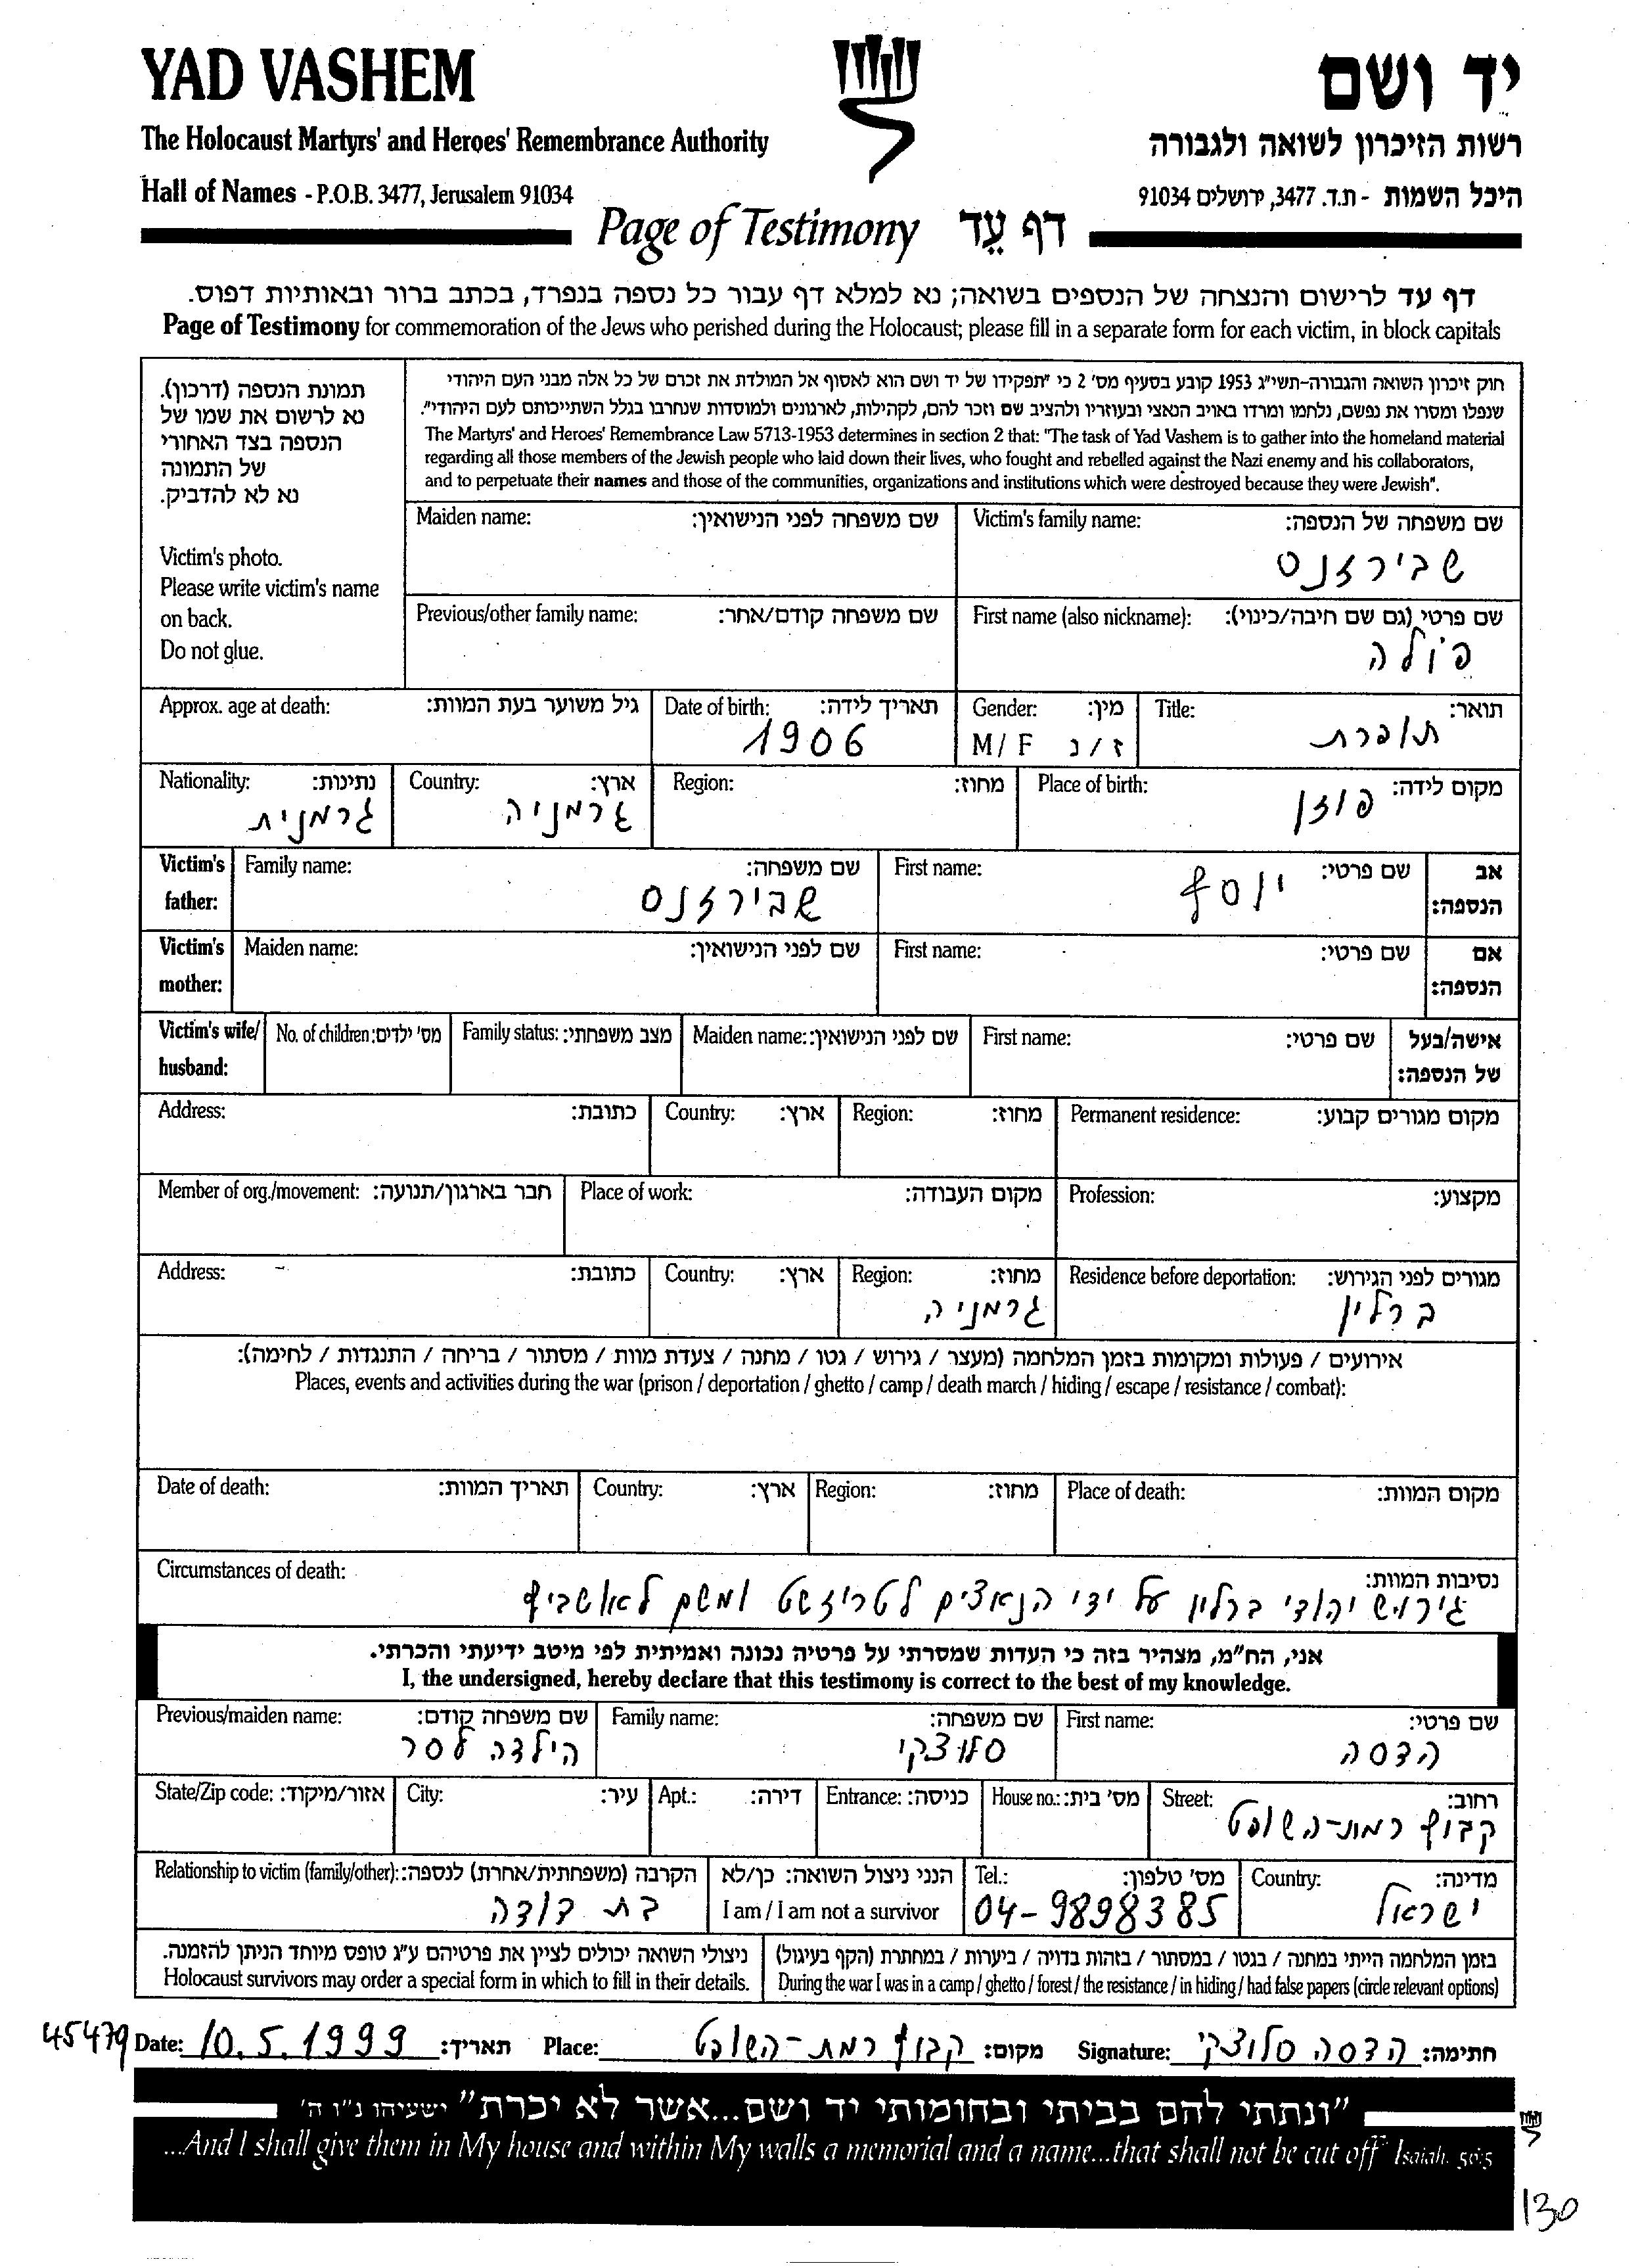 YAD VASHEM
יד ושם
The Holocaust Martyrs' and Heroes' Remembrance Authority
רשות הזיכרון לשואה ולגבורה
Hall of Names - P.O.B. 3477, Jerusalem 91034
היכל השמות - ת.ד. 3477, ירושלים 91034
Page of Testimony דף עֵד
דף עד לרישום והנצחה של הנספים בשואה; נא למלא דף עבור כל נספה בנפרד, בכתב ברור ובאותיות דפוס.
Page of Testimony for commemoration of the Jews who perished during the Holocaust; please fill in a separate form for each victim, in block capitals
תמונת הנספה (דרכון).
נא לרשום את שמו של
הנספה בצד האחורי
של התמונה
נא לא להדביק.
Victim's photo.
Please write victim's name
on back.
Do not glue.
חוק זיכרון השואה והגבורה-תשי"ג 1953 קובע בסעיף מס' 2 כי "תפקידו של יד ושם הוא לאסוף אל המולדת את זכרם של כל אלה מבני העם היהודי
שנפלו ומסרו את נפשם, נלחמו ומרדו באויב הנאצי ובעוזריו ולהציב שם וזכר להם, לקהילות, לארגונים ולמוסדות שנחרבו בגלל השתייכותם לעם היהודי".
The Martyrs' and Heroes' Remembrance Law 5713-1953 determines in section 2 that: "The task of Yad Vashem is to gather into the homeland material
regarding all those members of the Jewish people who laid down their lives, who fought and rebelled against the Nazi enemy and his collaborators,
and to perpetuate their names and those of the communities, organizations and institutions which were destroyed because they were Jewish".
Maiden name: שם משפחה לפני הנישואין:
Victim's family name: שם משפחה של הנספה:
שבירזנס
Previous/other family name: שם משפחה קודם/אחר:
First name (also nickname): שם פרטי (גם שם חיבה/כינוי):
פולה
Approx. age at death: גיל משוער בעת המוות:
Date of birth: תאריך לידה:
1906
Gender: מין:
M / F ז / נ
Title: תואר:
תופרת
Nationality: נתינות:
גרמנית
Country: ארץ:
גרמניה
Region: מחוז:
Place of birth: מקום לידה:
פוזן
Victim's father:
Family name: שם משפחה:
שבירזנס
First name: שם פרטי:
יוסף
אב הנספה:
Victim's mother:
Maiden name: שם לפני הנישואין:
First name: שם פרטי:
אם הנספה:
Victim's wife/ husband:
No. of children: מס' ילדים:
Family status: מצב משפחתי:
Maiden name: שם לפני הנישואין:
First name: שם פרטי:
אישה/בעל של הנספה:
Address: כתובת:
Country: ארץ:
Region: מחוז:
Permanent residence: מקום מגורים קבוע:
Member of org./movement: חבר בארגון/תנועה:
Place of work: מקום העבודה:
Profession: מקצוע:
Address: כתובת:
Country: ארץ:
Region: מחוז:
גרמניה
Residence before deportation: מגורים לפני הגירוש:
ברלין
אירועים / פעולות ומקומות בזמן המלחמה (מעצר / גירוש / גטו / מחנה / צעדת מוות / מסתור / בריחה / התנגדות / לחימה):
Places, events and activities during the war (prison / deportation / ghetto / camp / death march / hiding / escape / resistance / combat):
Date of death: תאריך המוות:
Country: ארץ:
Region: מחוז:
Place of death: מקום המוות:
Circumstances of death: נסיבות המוות:
גירוש יהודי ברלין על ידי הנאצים לטריזשט ומשם לאושביץ
אני, הח"מ, מצהיר בזה כי העדות שמסרתי על פרטיה נכונה ואמיתית לפי מיטב ידיעתי והכרתי.
I, the undersigned, hereby declare that this testimony is correct to the best of my knowledge.
Previous/maiden name: שם משפחה קודם:
הילדה לסר
Family name: שם משפחה:
סלוצקי
First name: שם פרטי:
הדסה
State/Zip code: אזור/מיקוד:
City: עיר:
Apt.: דירה:
Entrance: כניסה:
House no.: מס' בית:
Street: רחוב:
קבוץ רמת-השופט
Relationship to victim (family/other): הקרבה (משפחתית/אחרת) לנספה:
בת דודה
הנני ניצול השואה: כן/לא
I am / I am not a survivor
Tel.: מס' טלפון:
04-9898385
Country: מדינה:
ישראל
ניצולי השואה יכולים לציין את פרטיהם ע"ג טופס מיוחד הניתן להזמנה.
Holocaust survivors may order a special form in which to fill in their details.
בזמן המלחמה הייתי במחנה / בגטו / במסתור / בזהות בדויה / ביערות / במחתרת (הקף בעיגול)
During the war I was in a camp / ghetto / forest / the resistance / in hiding / had false papers (circle relevant options)
45479 Date: 10.5.1999 תאריך: Place: קבוץ רמת-השופט מקום: Signature: הדסה סלוצקי חתימה:
"ונתתי להם בביתי ובחומותי יד ושם...אשר לא יכרת" ישעיהו נ"ו ה'
...And I shall give them in My house and within My walls a memorial and a name...that shall not be cut off" Isaiah. 56:5
130